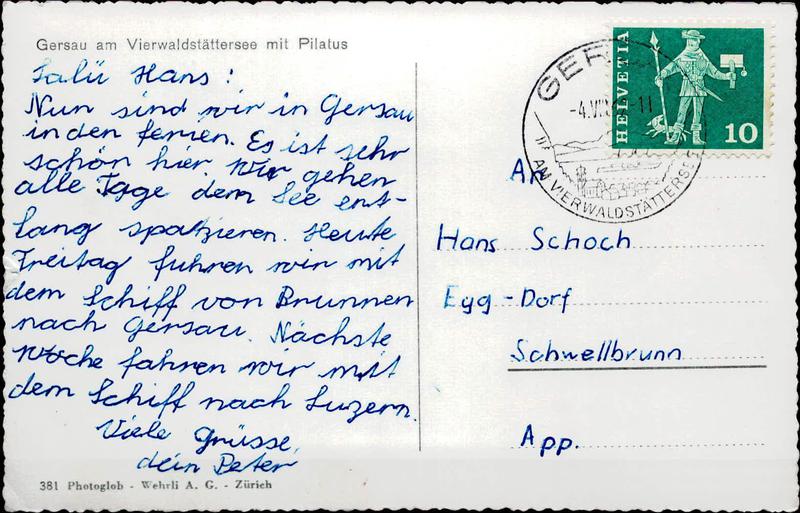 Gersau am Vierwaldstättersee mit Pilatus
Salü Hans!
Nun sind wir in Gersau
in den ferien. Es ist sehr
schön hier. Wir gehen
alle Tage dem See ent-
lang spatzieren. Heute
Freitag fuhren wir mit
dem Schiff von Brunnen
nach Gersau. Nächste
Woche fahren wir mit
dem Schiff nach Luzern.
Viele Grüsse,
dein Peter
381 Photoglob - Wehrli A. G. - Zürich
HELVETIA
10
GER
-4.VII
-11
AM VIERWALDSTÄTTERSEE
An
Hans Schoch
Egg-Dorf
Schwellbrunn
App.